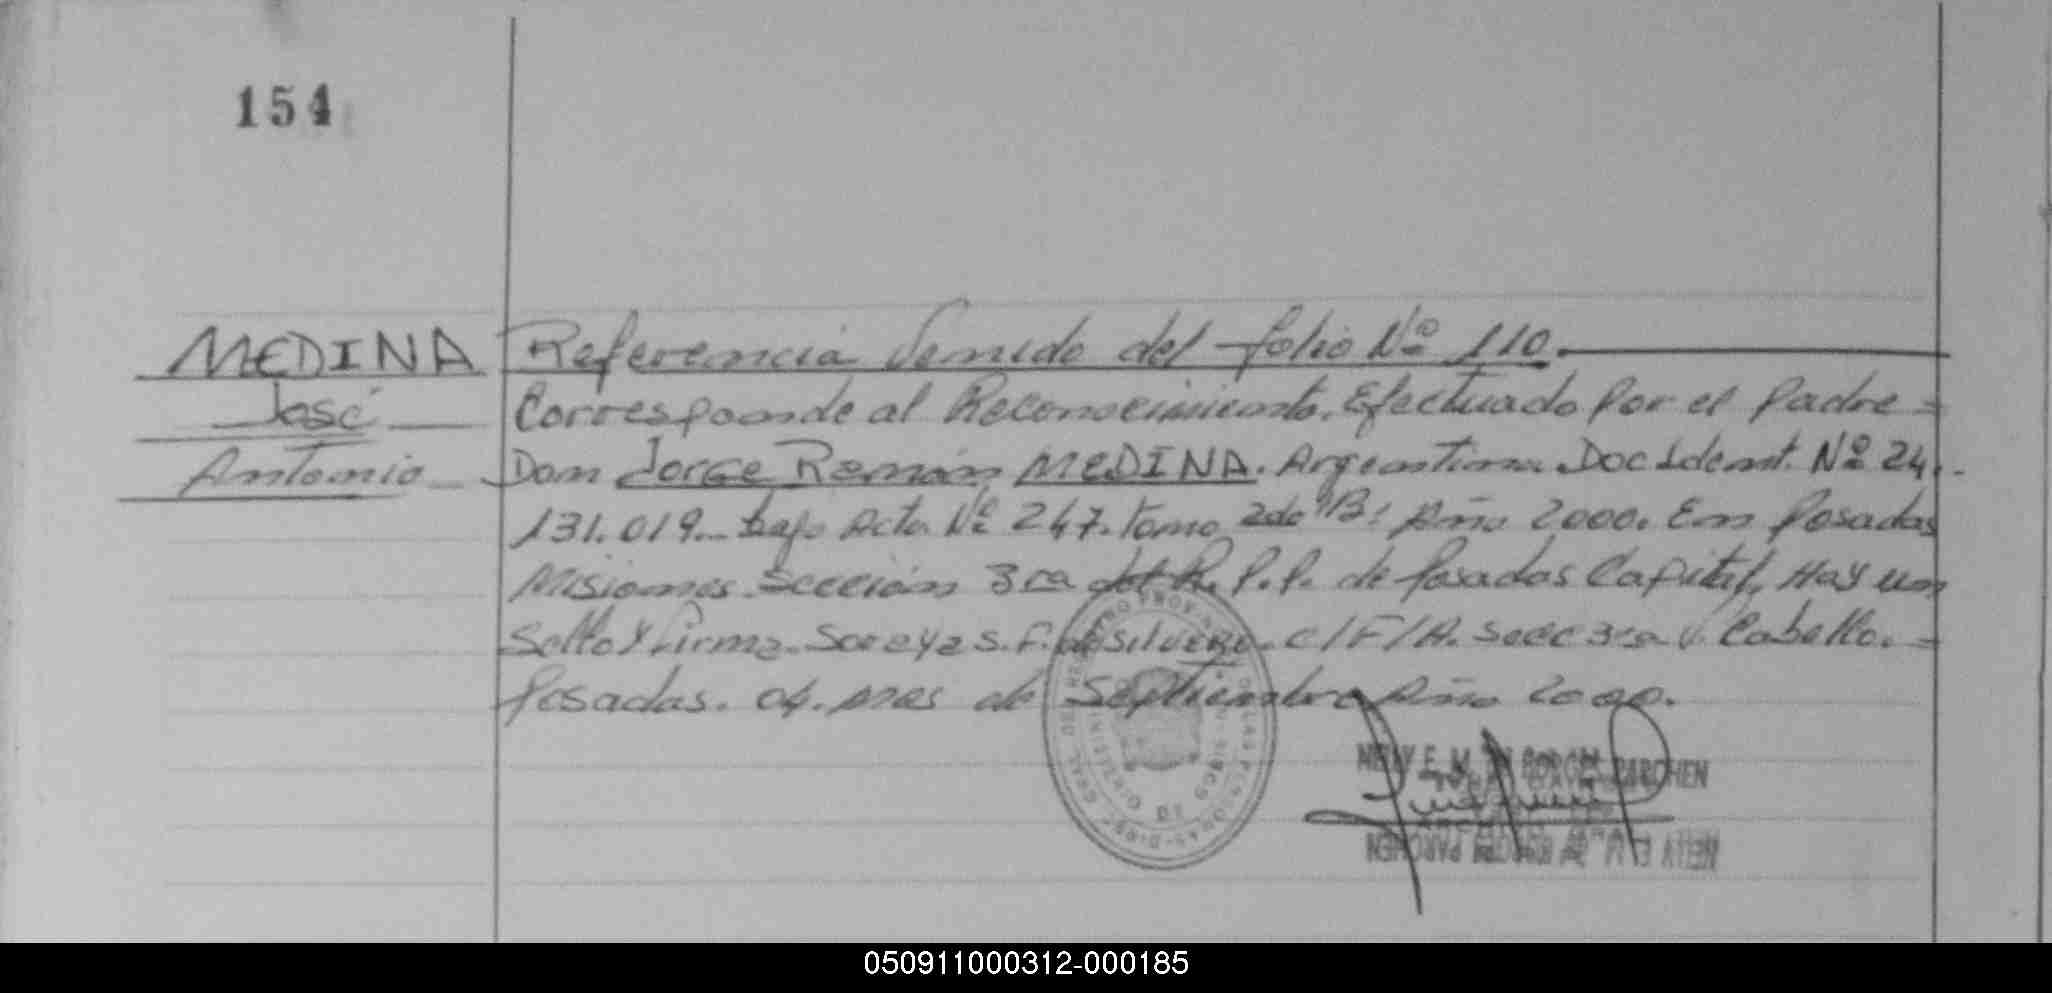 154
MEDINA Referencia Venido del folio Nº 110.
José Corresponde al Reconocimiento. Efectuado Por el Padre =
Antonio Don Jorge Ramón MEDINA. Argentino Doc Ident. Nº 24.
131.019. bajo Acta Nº 247. tomo 2do "B" Año 2000. En Posadas
Misiones Sección 3ra del R. P.P. de Posadas Capital, Hay un
Sello y Firma. S.F. de Silvero. c/F/A. Secc 3ra V. Cabello. =
Posadas. 04. mes de Septiembre Año 2000.
NELLY E. M. DE BORGES PARCHEN
NELLY E. M. DE BORGES PARCHEN
050911000312-000185